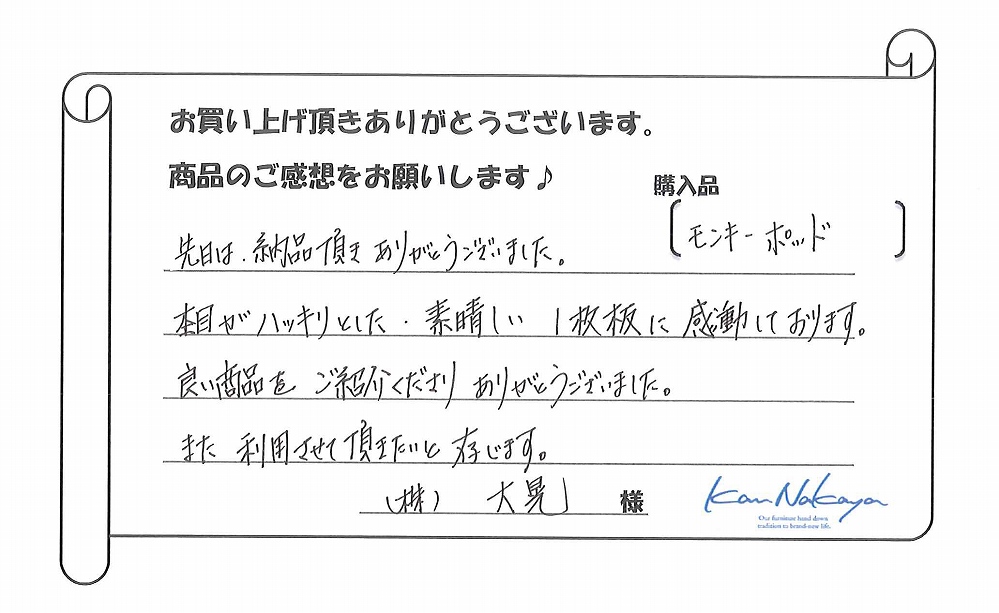 お買い上げ頂きありがとうございます。
商品のご感想をお願いします♪
購入品
[モンキーポッド]
先日は、納品頂きありがとうございました。
木目がハッキリとした、素晴しい1枚板に感動しております。
良い商品をご紹介くださりありがとうございました。
また利用させて頂きたいと存じます。
(株) 大晃 様
Kan Nakaya
Our furniture hand down
tradition to brand-new life.